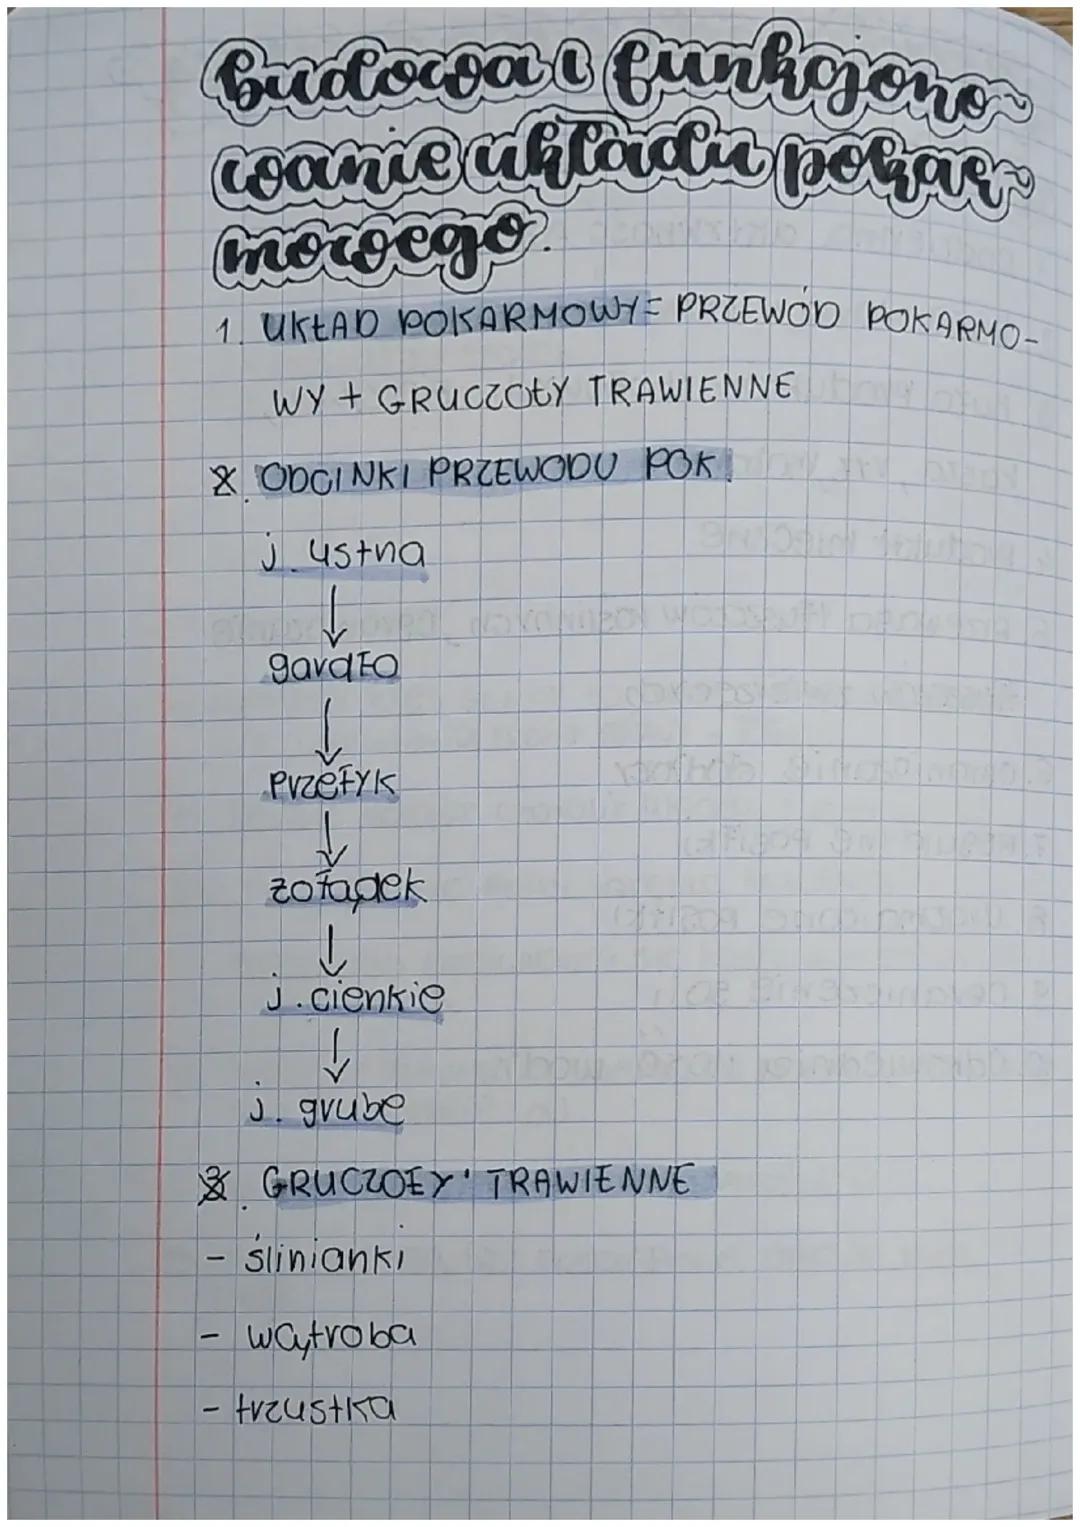 Budowa i funkcjono-
wanie układu pokar-
mowego.
1. UKŁAD POKARMOWY = PRZEWÓD POKARMO-
WY + GRUCZOŁY TRAWIENNE
2. ODCINKI PRZEWODU POK.
j. ustna
↓
gardło
↓
przełyk
↓
żołądek
↓
j. cienkie
↓
j. grube
3. GRUCZOŁY TRAWIENNE
- ślinianki
- wątroba
- trzustka